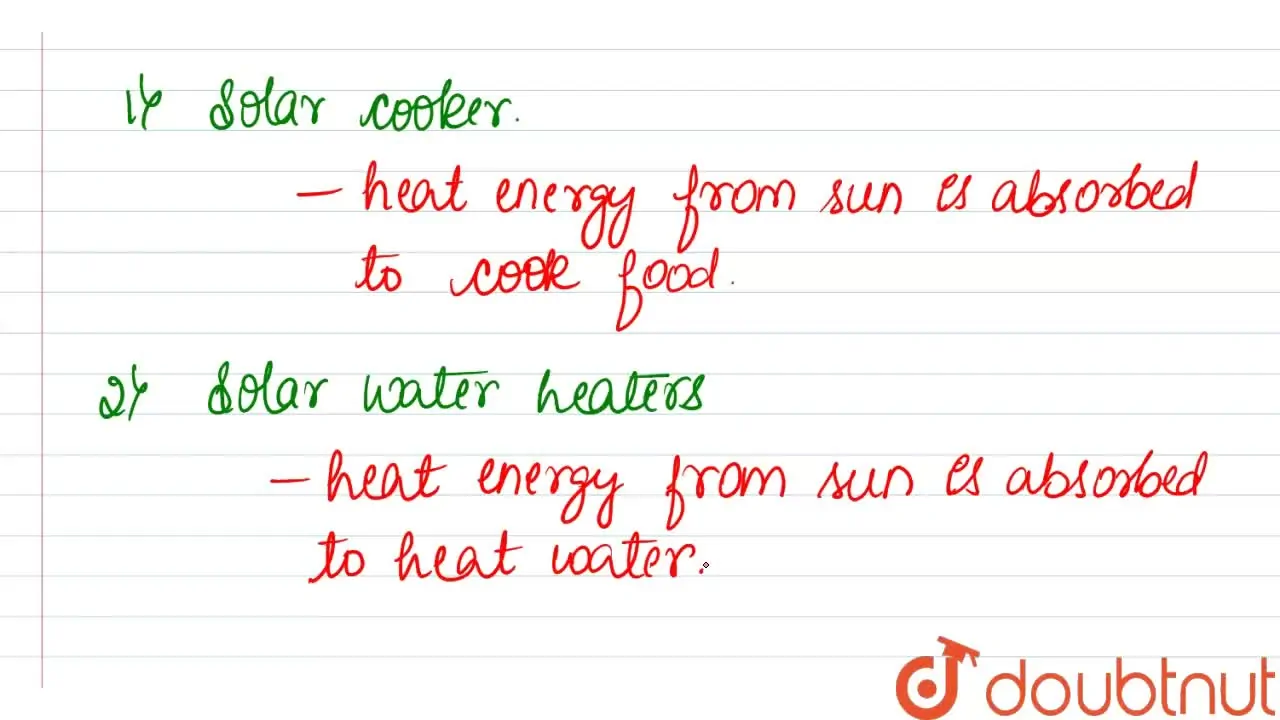 1) Solar cooker.
- heat energy from sun is absorbed
to cook food.
2) Solar water heaters
- heat energy from sun is absorbed
to heat water.
doubtnut